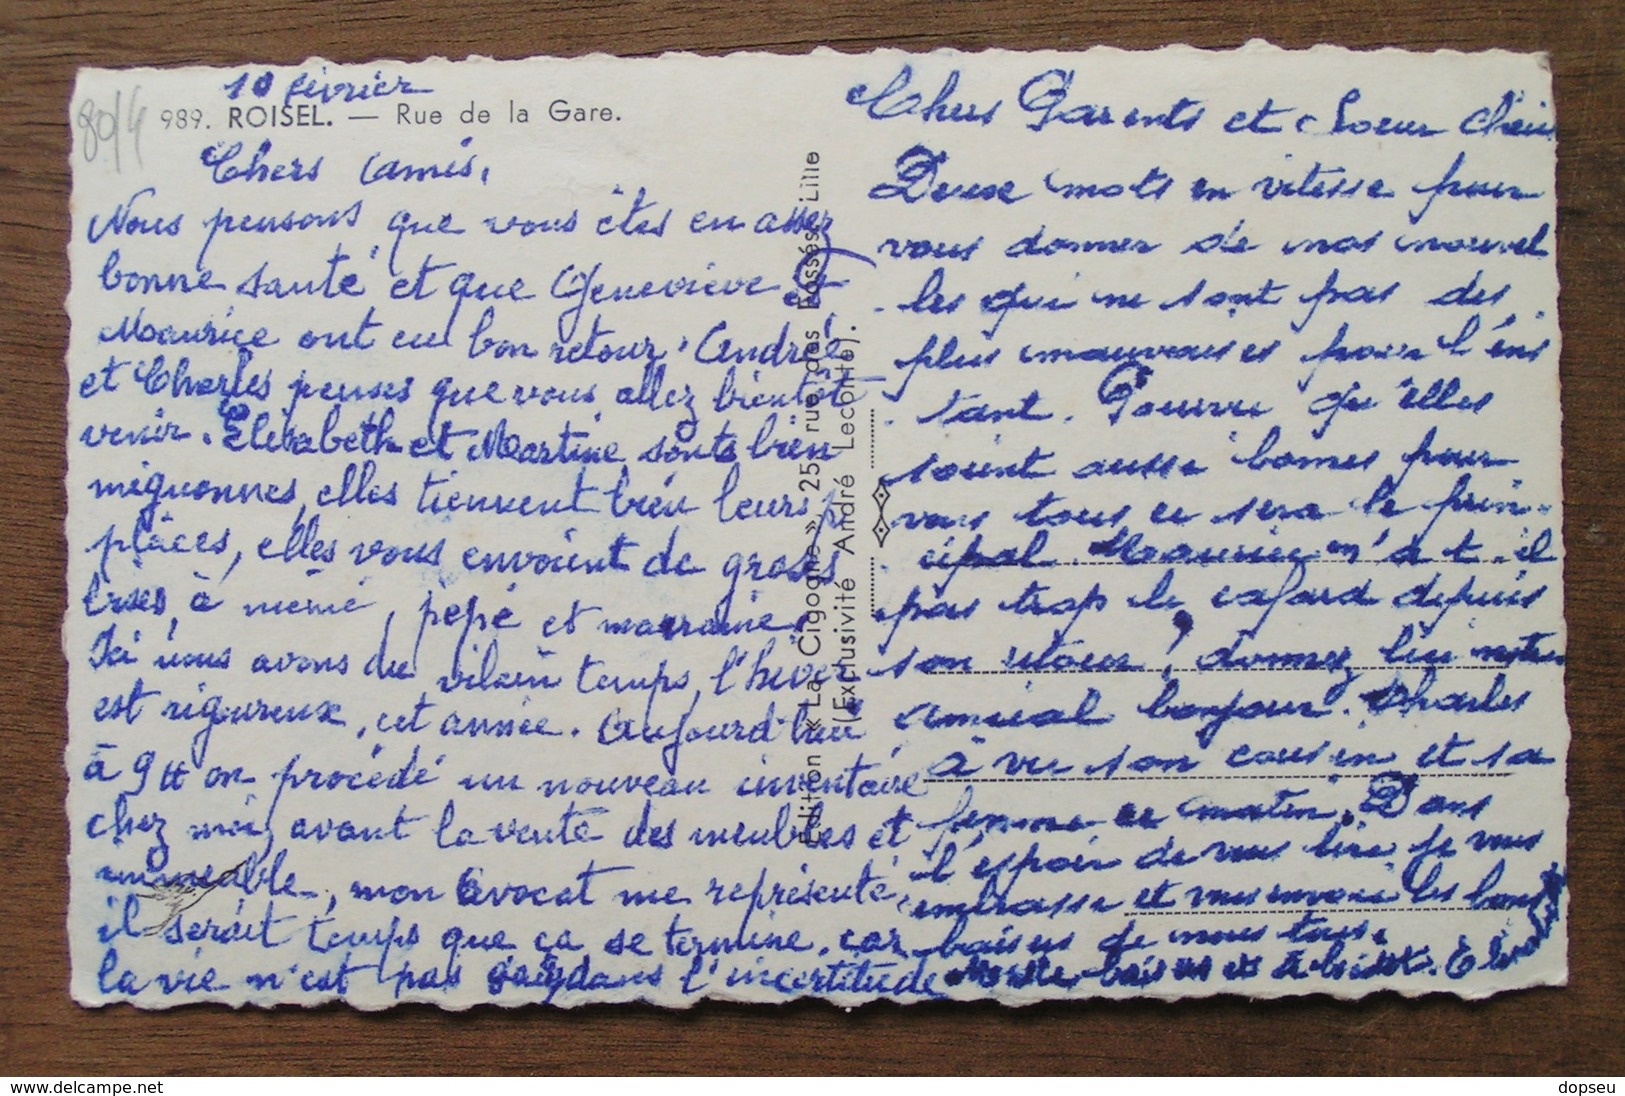 80/4
10 février
989. ROISEL. — Rue de la Gare.
Chers amis,
Nous pensons que vous êtes en assez
bonne santé et que Geneviève et
Maurice ont eu bon retour, André
et Charles penses que vous allez bientôt
venir. Elisabeth et Martine sont bien
mignonnes, elles tiennent bien leurs
places, elles vous envoient de groses
bises, à mémé, pépé et marraine.
Ici nous avons du vilain temps, l'hiver
est rigoureux, cet année. Aujourd'hui
à 9H on procédé un nouveau inventaire
chez moi, avant la vente des meubles et
immeable, mon avocat me représente,
il serait temps que ça se termine, car
la vie n'est pas gaie dans l'incertitude
Edition « La Cigogne » 25 rue des Fossés, Lille
(Exclusivité André Lecomte).
Chers Parents et Soeur
Deux mots en vitesse pour
vous donner de nos nouvel
les qui ne sont pas des
plus mauvaises pour l'ins
tant. Pourvu qu'elles
soient aussi bonnes pour
vous tous ce sera le prin-
cipal. Maurice n'a t-il
pas trop le cafard depuis
son retour ? donnez lui notre
amical bonjour. Charles
à vu son cousin et sa
femme ce matin. Dans
l'espoir de vous lire je vous
embrasse et vous envoie les bons
baisers de nous tous.
baisers